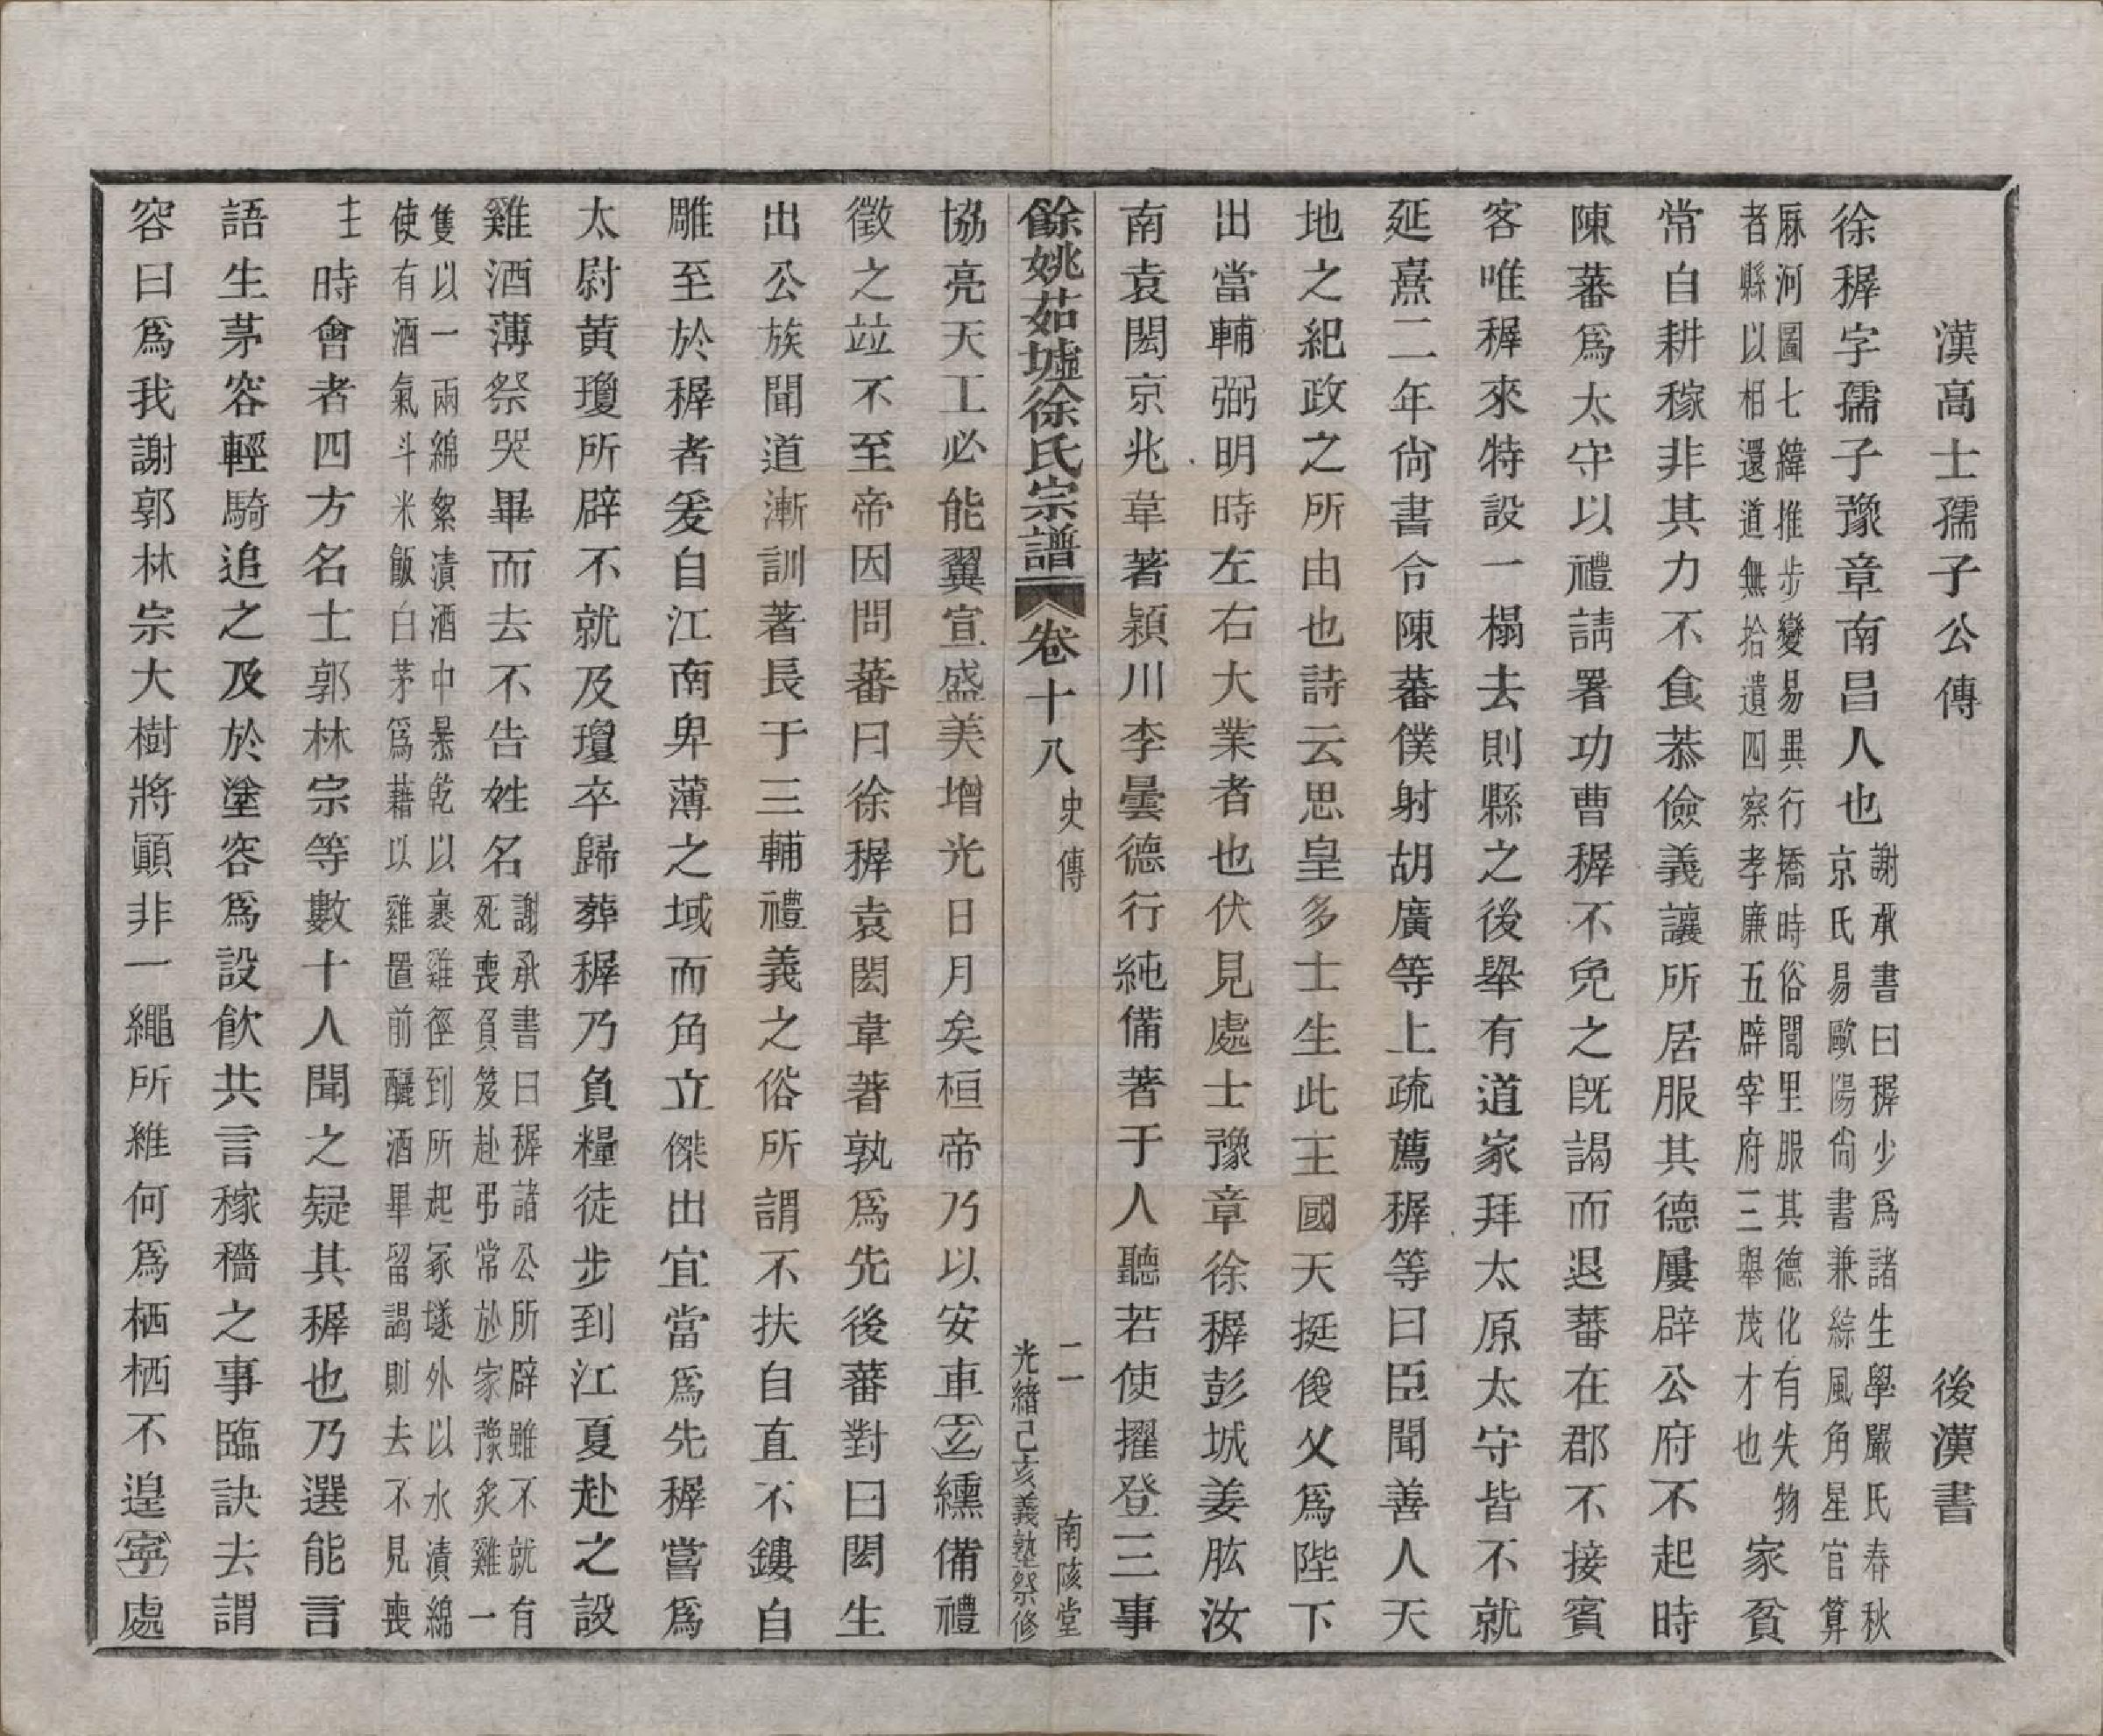 漢高士孺子公傳　後漢書
徐穉字孺子豫章南昌人也謝承書曰穉少爲諸生學嚴氏春秋京氏易歐陽尙書兼綜風角星官算
厤河圖七緯推步變易異行矯時俗閭里服其德化有失物者縣以相還道無拾遺四察孝廉五辟宰府三舉茂才也家貧
常自耕稼非其力不食恭儉義讓所居服其德屢辟公府不起時
陳蕃爲太守以禮請署功曹穉不免之旣謁而退蕃在郡不接賓
客唯穉來特設一榻去則縣之後舉有道家拜太原太守皆不就
延熹二年尙書令陳蕃僕射胡廣等上疏薦穉等曰臣聞善人天
地之紀政之所由也詩云思皇多士生此主國天挺俊乂爲陛下
出當輔弼明時左右大業者也伏見處士豫章徐穉彭城姜肱汝
南袁閎京兆韋著潁川李曇德行純備著于人聽若使擢登三事
餘姚茹墟徐氏宗譜　卷十八　史傳　二　南陔堂　光緒己亥義塾祭修
協亮天工必能翼宣盛美增光日月矣桓帝乃以安車玄纁備禮
徵之竝不至帝因問蕃曰徐穉袁閎韋著孰爲先後蕃對曰閎生
出公族聞道漸訓著長于三輔禮義之俗所謂不扶自直不鏤自
雕至於穉者爰自江南卑薄之域而角立傑出宜當爲先穉嘗爲
太尉黄瓊所辟不就及瓊卒歸葬穉乃負糧徒步到江夏赴之設
雞酒薄祭哭畢而去不告姓名謝承書曰穉諸公所辟雖不就有死喪負笈赴弔常於家豫炙雞一
隻以一兩綿絮漬酒中暴乾以裹雞徑到所起冢墜外以水漬綿使有酒氣斗米飯白茅爲藉以雞置前釃酒畢留謁則去不見喪
主時會者四方名士郭林宗等數十人聞之疑其穉也乃選能言
語生茅容輕騎追之及於塗容爲設飲共言稼穡之事臨訣去謂
容曰爲我謝郭林宗大樹將顚非一繩所維何爲栖栖不遑寧處